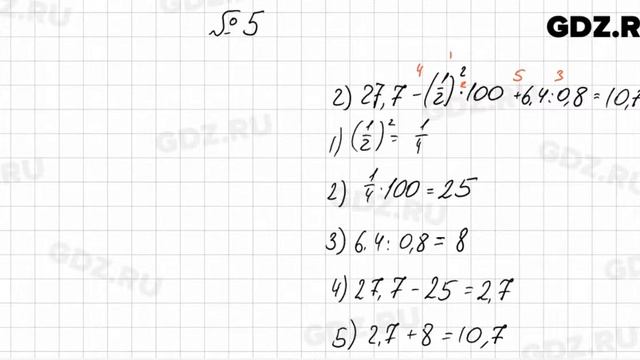 № 5
GDZ.R
2) 27,7 - (1/2)² · 100 + 6,4 : 0,8 = 10,7
1 2 3 4 5
1) (1/2)² = 1/4
2) 1/4 · 100 = 25
3) 6,4 : 0,8 = 8
4) 27,7 - 25 = 2,7
5) 2,7 + 8 = 10,7
GDZ.RU
GDZ.RU
GDZ.RU
GDZ.RU
GDZ.RU